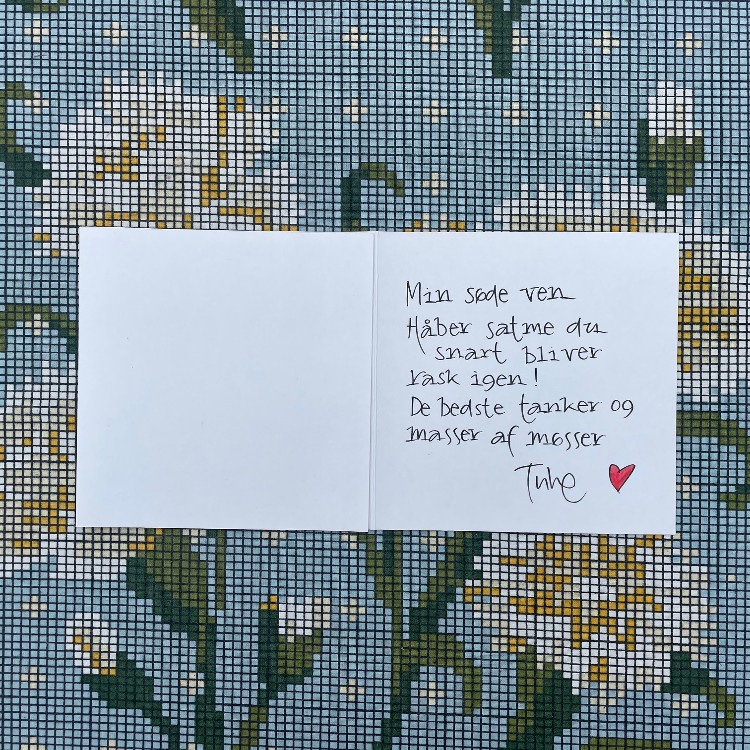 Min søde ven
Håber satme du
snart bliver
rask igen!
De bedste tanker og
masser af møsser